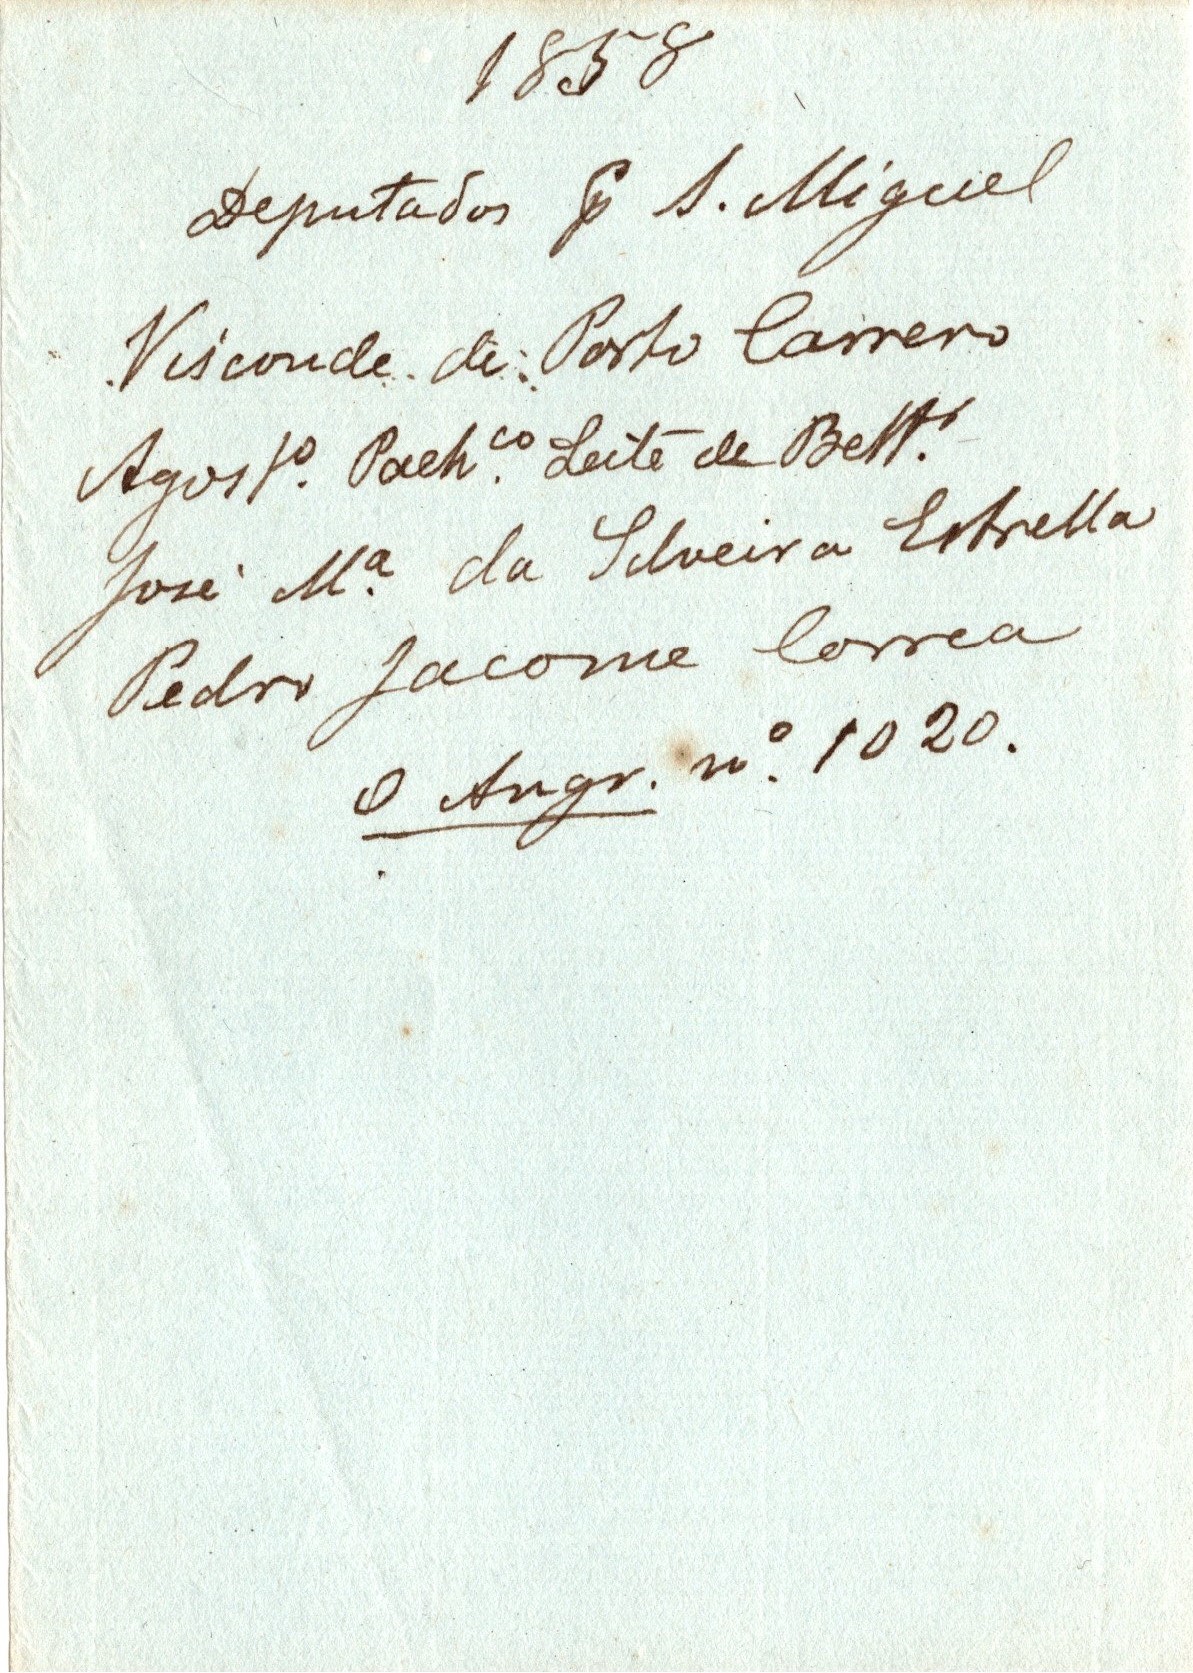 1858
Deputados p S. Miguel
Visconde de Porto Carrero
Agost.º Pach.co Leite de Bett.
José M.ª da Silveira Estrella
Pedro Jacome Correa
O Angr. nº. 1020.